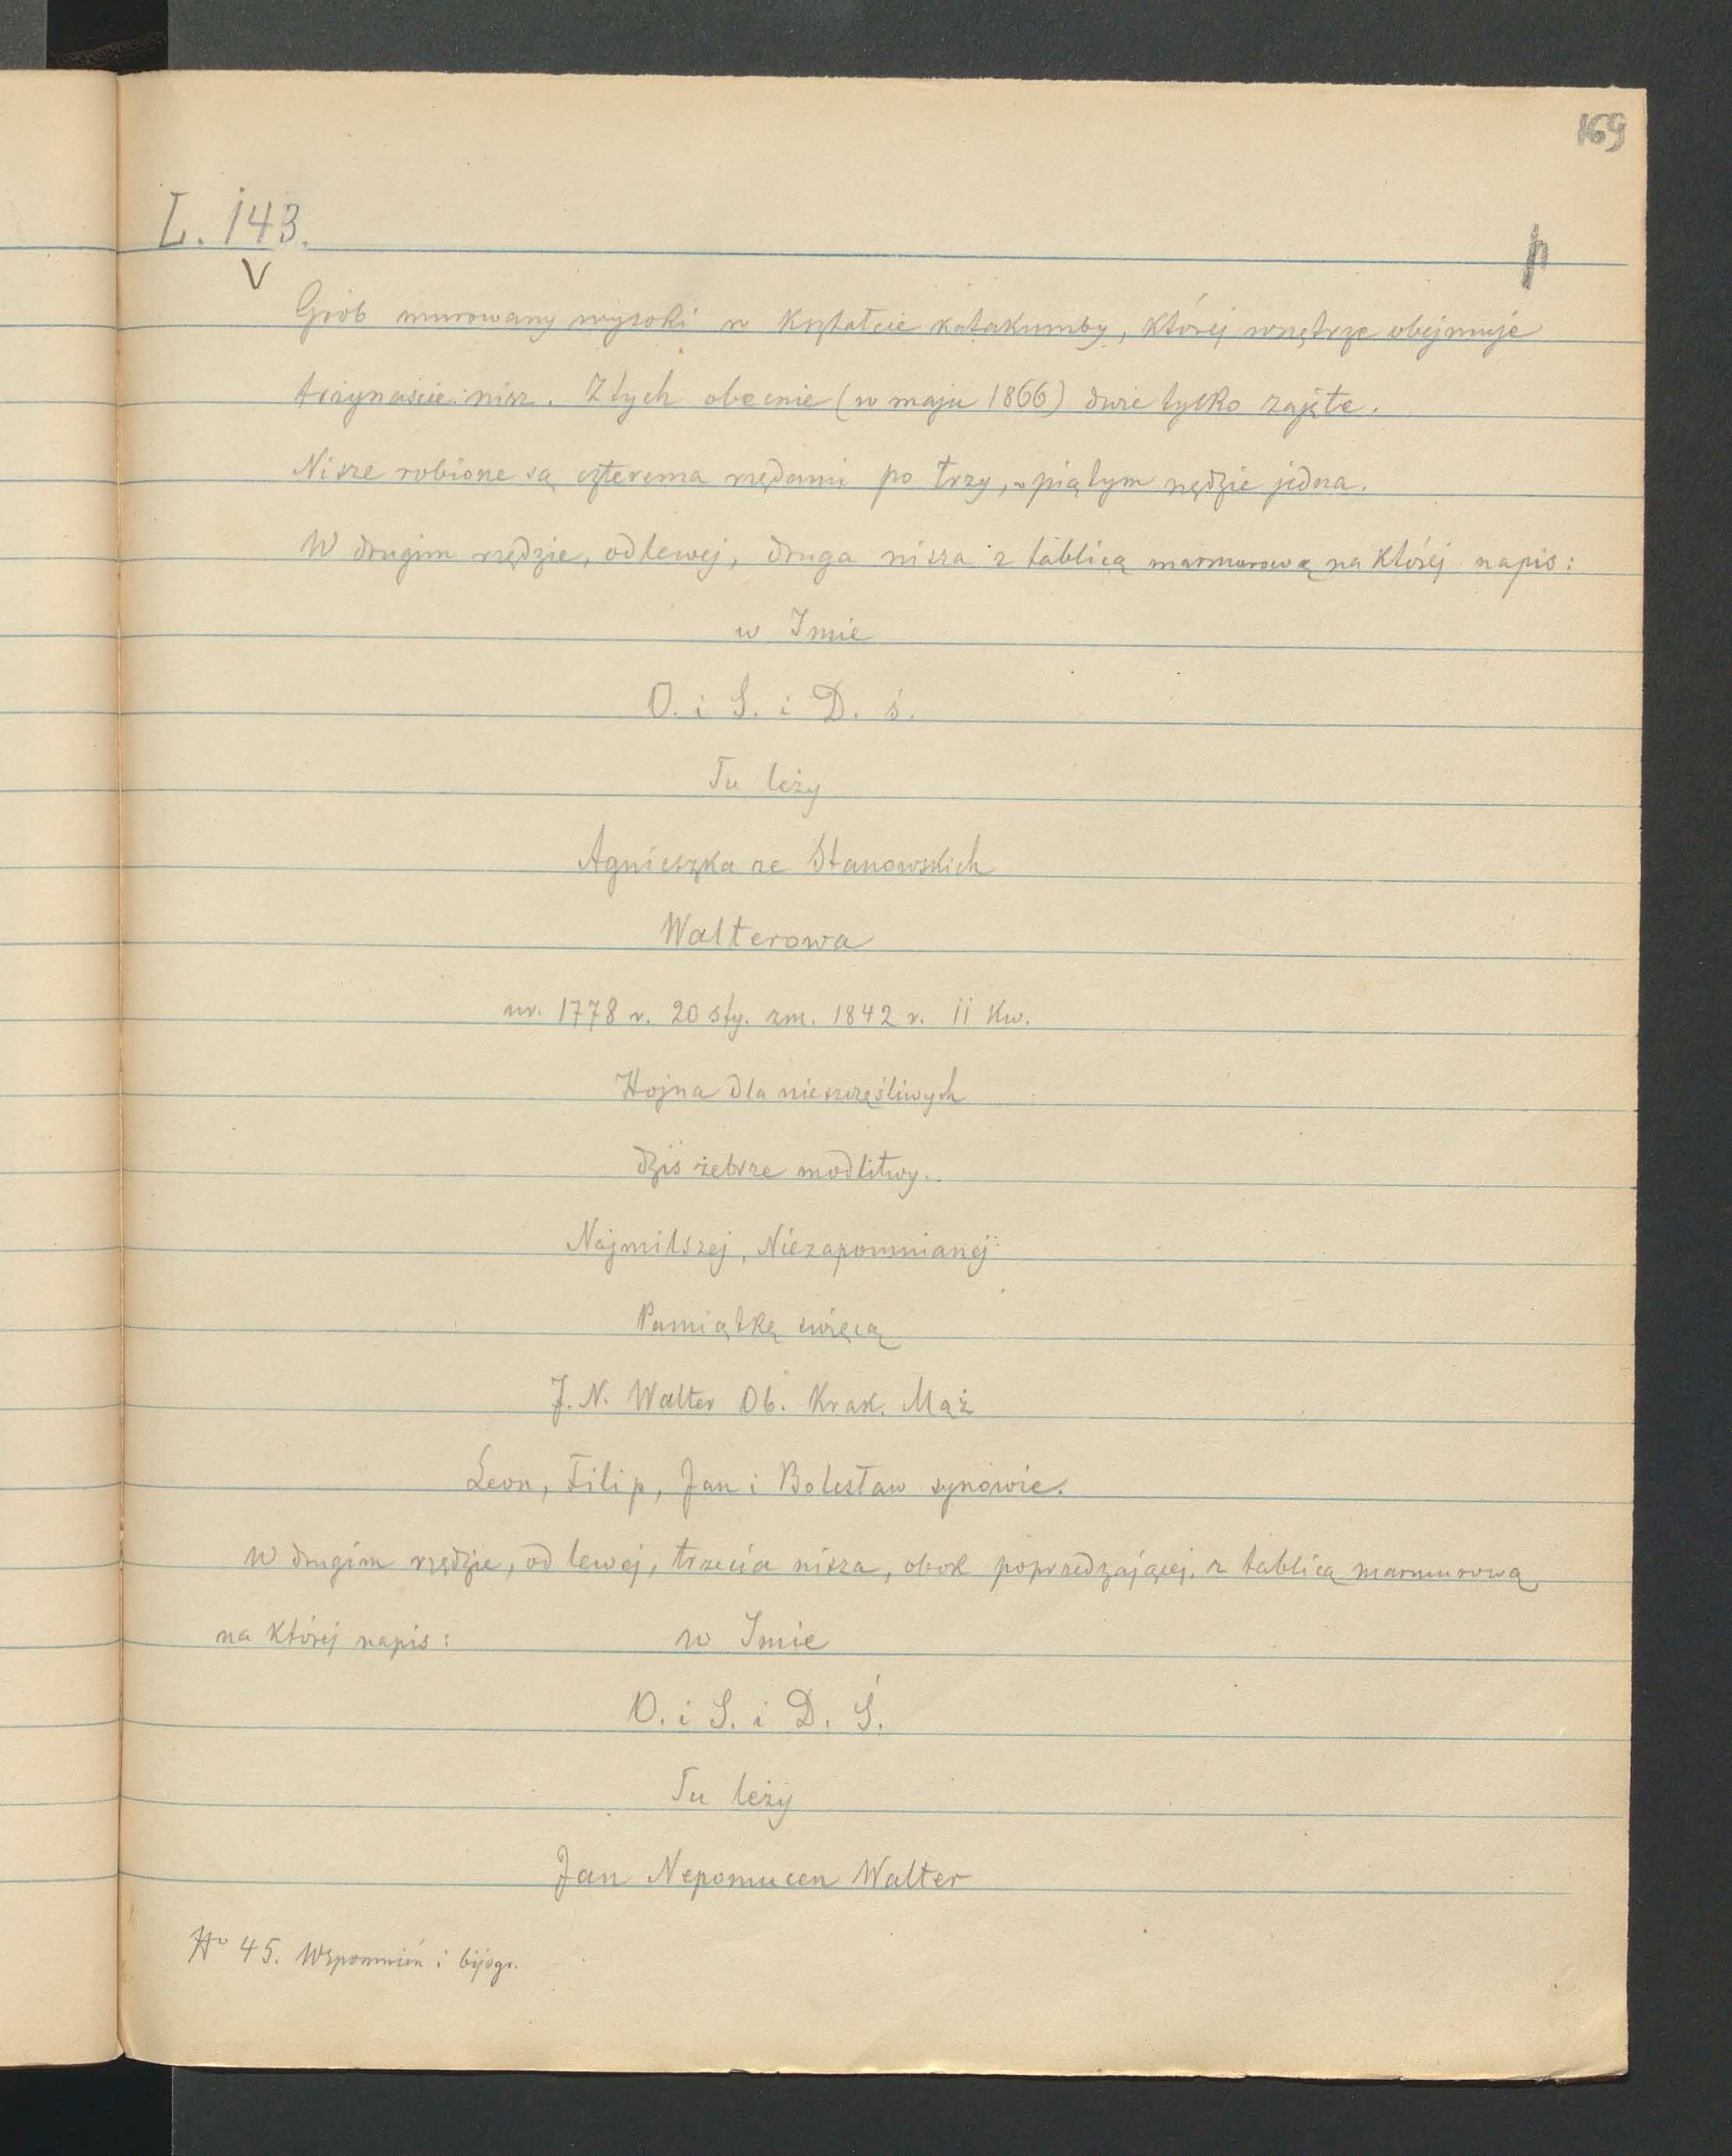 169
L. 143.
p
V
Grób murowany wysoki w kształcie katakumby, której wnętrze obejmuje
trzynaście nisz. Z tych obecnie (w maju 1866) dwie tylko zajęte.
Nisze robione są czterema rzędami po trzy, w piątym rzędzie jedna.
W drugim rzędzie, od lewej, druga nisza z tablicą marmurową na której napis:
w Imie
O. i S. i D. ś.
Tu leży
Agnieszka ze Stanowskich
Walterowa
ur. 1778 r. 20 sty. zm. 1842 r. 11 Kw.
Hojna dla nieszczęśliwych
dziś żebrze modlitwy.
Najmilszej, Niezapomnianej
Pamiątkę święcą
J. N. Walter Ob. Krak. Mąż
Leon, Filip, Jan i Bolesław synowie.
W drugim rzędzie, od lewej, trzecia nisza, obok poprzedzającej, z tablicą marmurową
na której napis: w Imie
O. i S. i D. Ś.
Tu leży
Jan Nepomucen Walter
No 45. Wspomnień i bijogr.